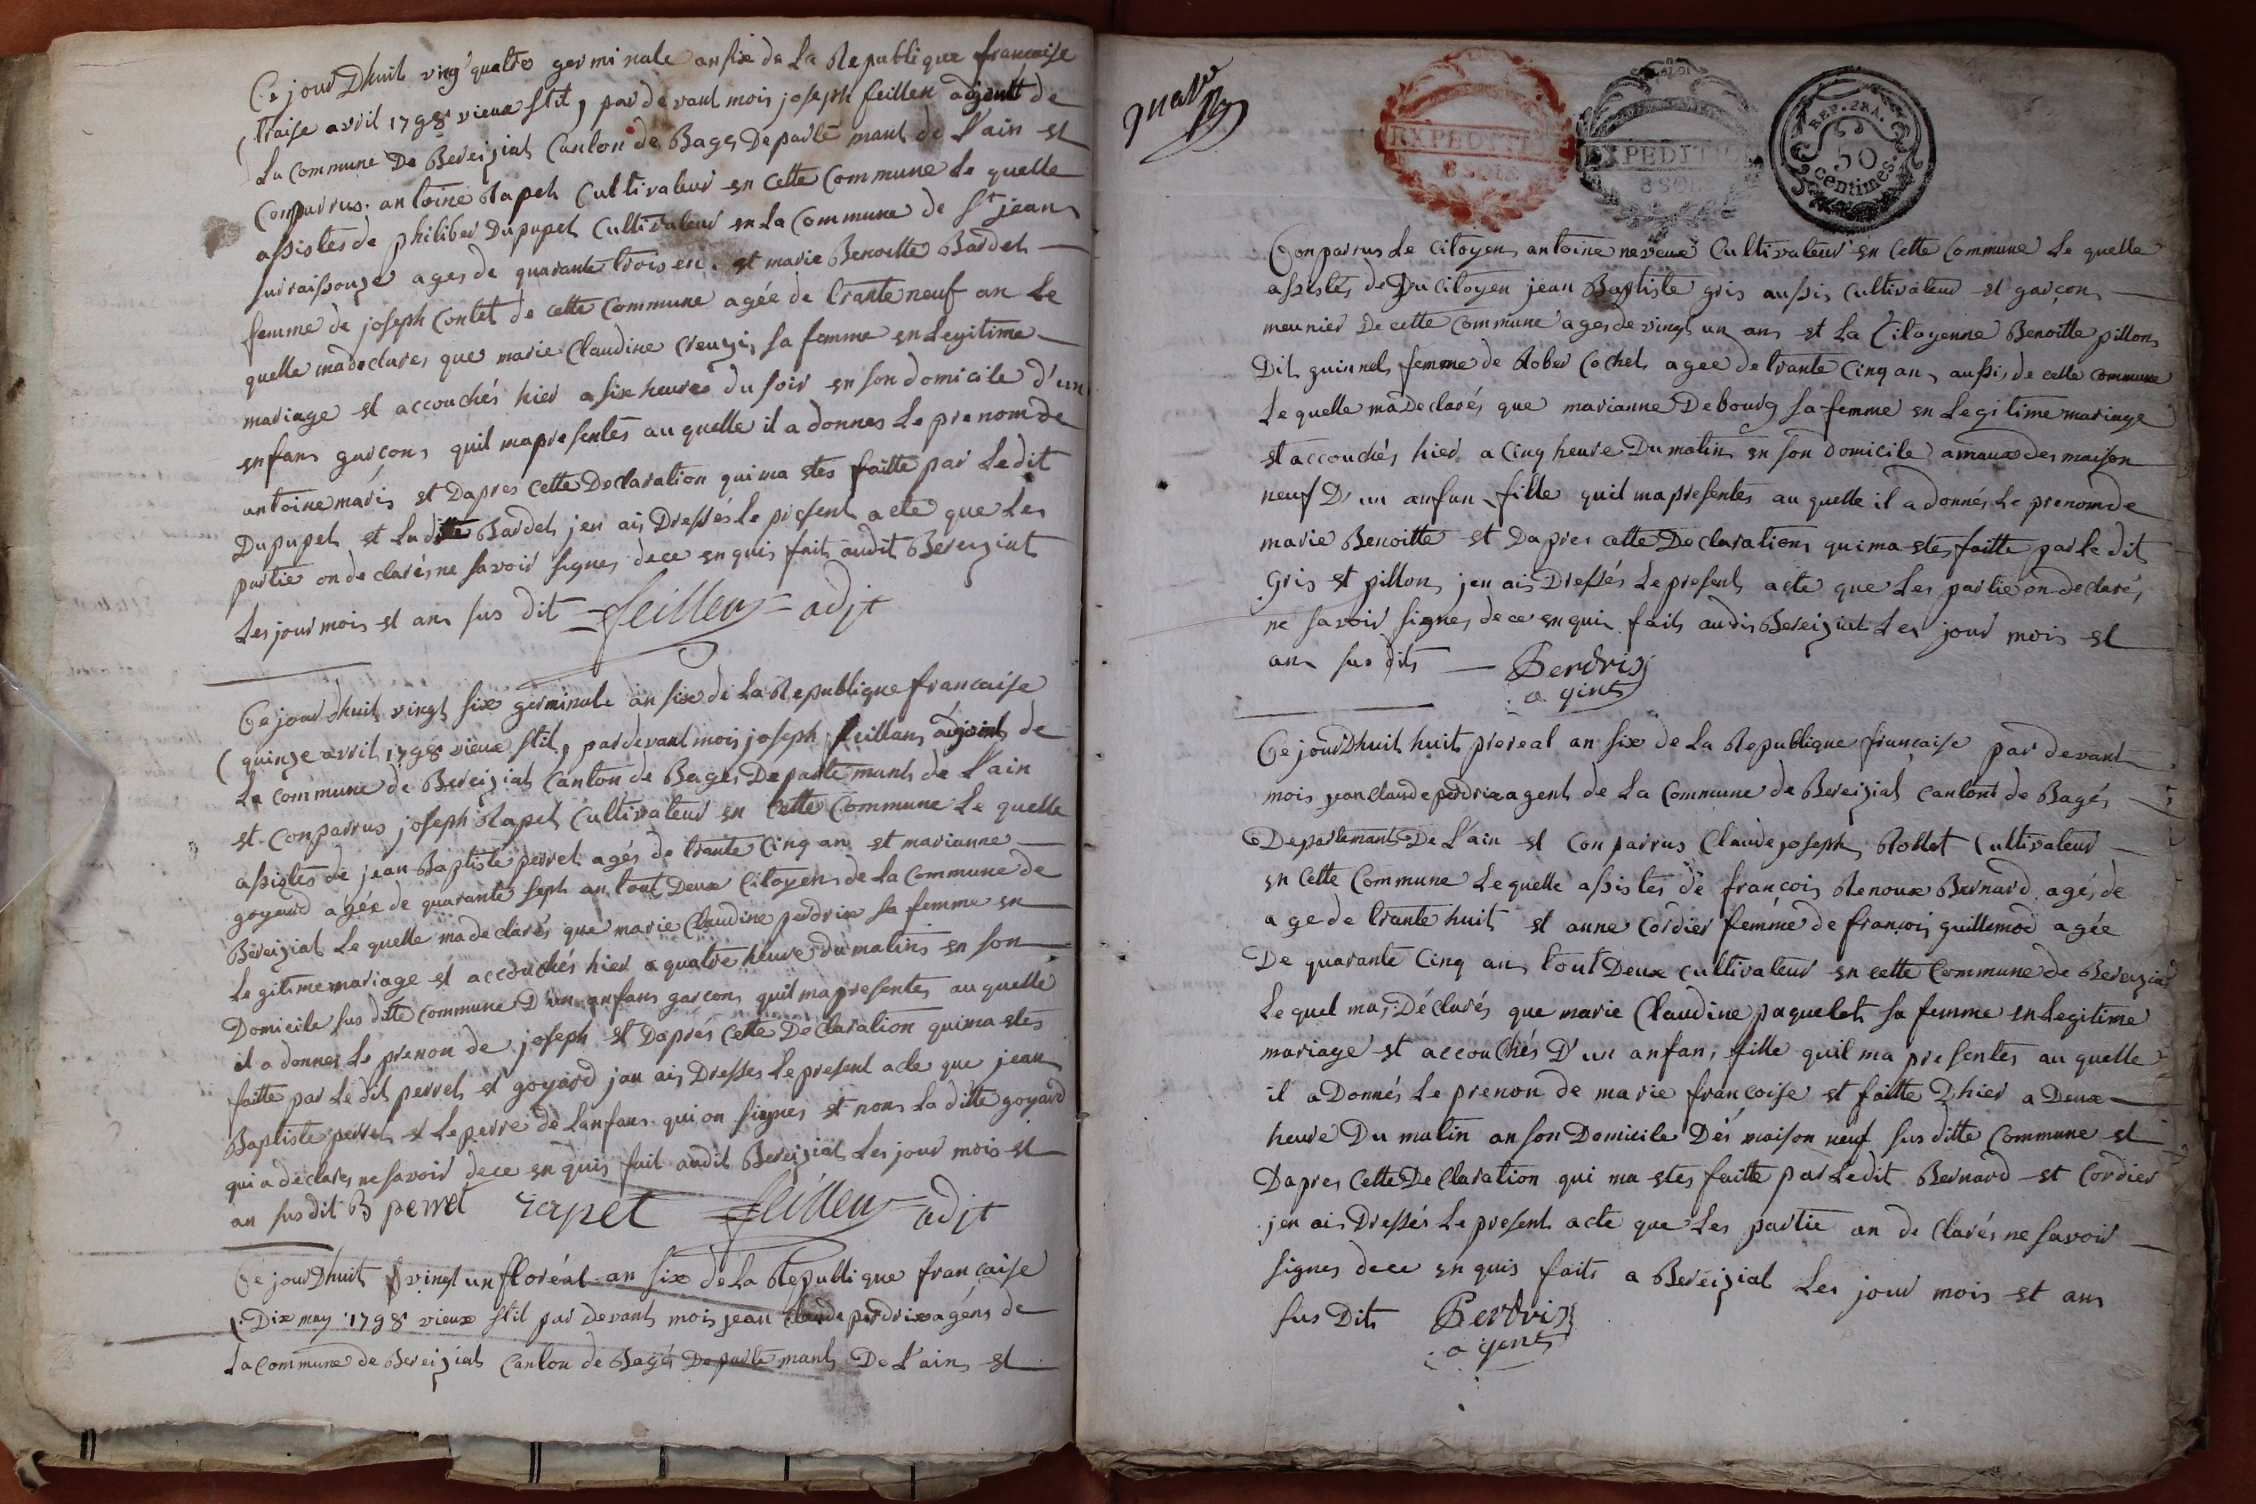 Ce jour Dhuit ving quatre germinale an six de la Republique francaise
(traise avril 1798 vieux stil, par devant mois joseph feillen adjoint de
La Commune De Bereiziat Canton de Bages Departemant de L'ain est
Comparrus antoine Rapet Cultivateur en cette Commune Le quelle
assistes de philiber Dupupet Cultivateur en La Commune de St jean
sur raissouze ages de quarante trois en. et marie Benoitte Bardet
femme de joseph Contet de cette Commune agée de trante neuf an Le
quelle ma declares que marie Claudine sa femme en Legitime
mariage est accouchés hier a six heures du soir en son domicile d'un
enfans garcons quil mapresentes au quelle il a donnes Le prenom de
antoine maris et Dapres Cette Declaration qui ma etes faitte par Ledit
Dupupet et Laditte Bardet jen ais Dressés Le present acte que Les
partie on declarés ne savoir signes dece enquis fait audit Bereiziat
Les jour mois et ans sus dit feillens adjt
Ce jour dhuit vingt six germinale an six de La Republique francaise
(quinze avril 1798 vieux stil, pardevant mois joseph feillans adjoint de
La commune de Bereiziat Canton de Bages Departemant de L'ain
est Conparrus joseph Rapet Cultivateur en Cette Commune Le quelle
assistes de jean Baptiste perret agés de trante Cinq ans et marianne
goyard agée de quarante sept an tout Deux Citoyens de La Commune de
Bereiziat Le quelle ma declarés que marie Claudine perdrix sa femme en
Legitime mariage est accouchés hier a quatre heure du matins en son
Domicile sus ditte Commune D'un anfans garcons quil mapresentes au quelle
il a donnes Le prenon de joseph et Daprés Cette Declaration qui ma etes
faitte par Le dit perret et goyard jan ais Dresses Le present acte que jean
Baptiste perret et Le perre de Lanfans qui on signes et nons La ditte goyard
qui a declares ne savoir dece enquis fait audit Bereiziat Les jour mois et
an sus dit B perret rapet feillens adjt
Ce jour Dhuit vingt un floréal an six de La Republique francaise
(Dix may 1798 vieux stil par devant mois jean Claude perdrix agens de
La Commune de Bereiziat Canton de Bagés Departemants De L'ain est
EXPEDITION
8 SOLS
EXPEDITION
8 SOLS
REP. FRA.
50
centimes.
Conparrus Le Citoyen antoine neveux Cultivateur en Cette Commune Le quelle
assistés de Du Citoyen jean Baptiste gris aussis Cultivateur et garçon
meunier De cette Commune ages de vingt un ans et La Citoyenne Benoitte pillon
Dit guinnet femme de Rober Cochet agee de trante Cinq an, aussis de cette Commune
Le quelle ma Declarés que marianne Debourg sa femme en Legitime mariage
et accouchés hier a Cinq heure Du matin en son domicile des maison
neuf D'un anfan fille quil mapresentes au quelle il a donnés Le prenom de
marie Benoitte et Dapres cette Declarations qui ma etes faitte par Le dit
Gris et pillon jen ais Dressés Le present acte que Les partie on declarés
ne savoir signes dece enquis faits audis Bereiziat Les jour mois et
ans sus dits Perdrix
agent
Ce jour Dhuit huit prereal an six de La Republique francaise par devant
mois jean Claude perdrix agent de La Commune de Bereiziat Cantons de Bagés
Departemants De L'ain et Conparrus Claude joseph Rollet Cultivateur
en Cette Commune Le quelle assistes de françois Renoux Bernard agés de
age de trante huit et anne Cordier femme de françois guillemod agée
De quarante Cinq ans tout Deux cultivateur en cette Commune de Bereiziat
Le quel mas Déclarés que marie Claudine paquelet sa femme en Legitime
mariage et accouchés D'un anfans fille quil ma presentes au quelle
il a Donnés Le prenon de marie françoise et faitte Dhier a Deux
heure Du matin an son Domicile Dés maison neuf sus ditte Commune et
Dapres Cette Declaration qui ma etes faitte par Ledit Bernard et Cordier
jen ais Dressés Le present acte que Les partie an de Clarés ne savoir
signes dece enquis faits a Bereiziat Les jour mois et ans
sus Dits Perdrix
agent